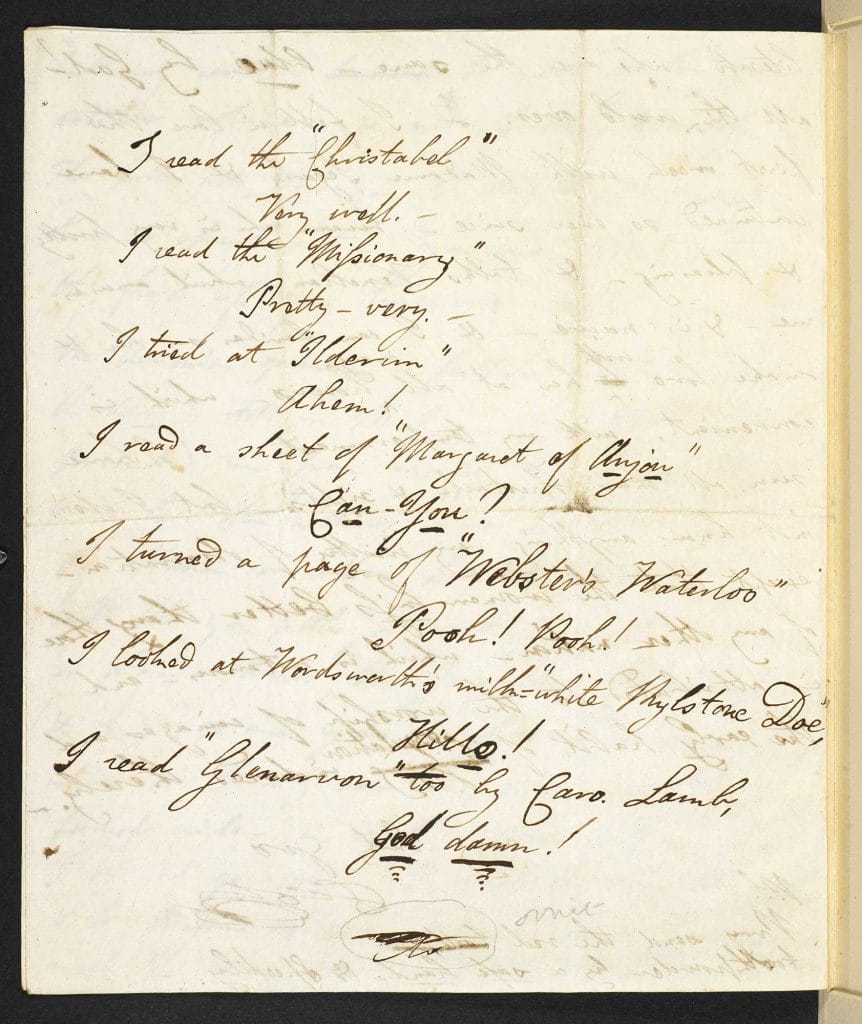 I read the "Christabel"
Very well. –
I read the "Missionary"
Pretty – very. –
I tried at "Ilderim"
Ahem!
I read a sheet of "Margaret of Anjou"
Can – You?
I turned a page of "Webster's Waterloo"
Pooh! Pooh!
I looked at Wordsworth's milk="white Rylstone Doe",
Hillo!
I read "Glenarvon" too by Caro. Lamb,
God damn!
omit